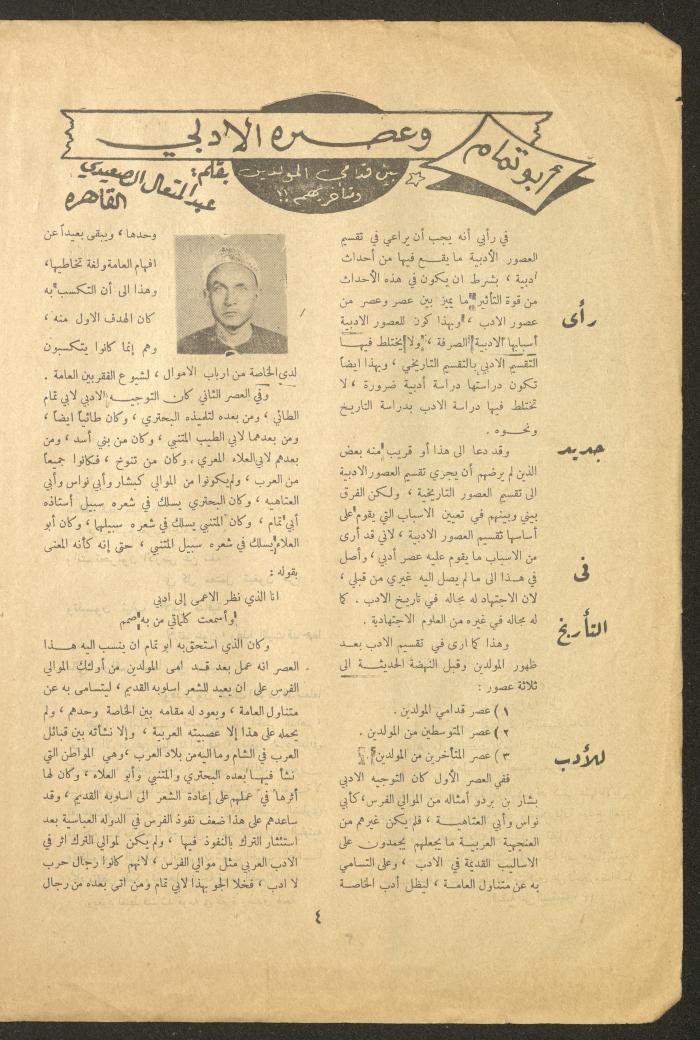 أبو تمام
وعصره الادبي
بين قدامى المولدين
ومتأخريهم !!
بقلم :
عبد المتعال الصعيدي
القاهره
رأى
جديد
فى
التأريخ
للأدب
في رأبي أنه يجب أن يراعي في تقسيم
العصور الأدبية ما يقع فيها من أحداث
أدبية ، بشرط ان يكون في هذه الأحداث
من قوة التأثير ما يميز بين عصر وعصر من
عصور الادب ، وبهذا كون للعصور الادبية
أسبابها الادبية الصرفة ، ولا يختلط فيها
التقسيم الادبي بالتقسيم التاريخي ، وبهذا ايضاً
تكون دراستها دراسة أدبية ضرورة ، لا
تختلط فيها دراسة الادب بدراسة التاريخ
ونحوه .
وقد دعا الى هذا أو قريب منه بعض
الذين لم يرضهم أن يجري تقسيم العصور الادبية
الى تقسيم العصور التاريخية ، ولكن الفرق
بيني وبينهم في تعيين الاسباب التي يقوم على
أساسها تقسيم العصور الادبية ، لاني قد أرى
من الاسباب ما يقوم عليه عصر أدبي ، وأصل
في هذا الى ما لم يصل اليه غيري من قبلي ،
لان الاجتهاد له مجاله في تاريخ الادب . كما
له مجاله في غيره من العلوم الاجتهادية .
وهذا كما ارى في تقسيم الادب بعد
ظهور المولدين وقبل النهضة الحديثة الى
ثلاثة عصور :
١ ) عصر قدامي المولدين .
٢ ) عصر المتوسطين من المولدين .
٣ ) عصر المتأخرين من المولدين .
ففي العصر الأول كان التوجيه الادبي
بشار بن برد وأمثاله من الموالي الفرس ، كأبي
نواس وأبي العتاهية ، فلم يكن غيرهم من
العنجهية العربية ما يجعلهم يجمدون على
الاساليب القديمة في الادب ، وعلى التسامي
به عن متناول العامة ، ليظل أدب الخاصة
وحدها ، ويبقى بعيداً عن
افهام العامة ولغة تخاطبها ،
وهذا الى أن التكسب به
كان الهدف الاول منه ،
وهم إنما كانوا يتكسبون
لدى الخاصة من ارباب الاموال ، لشيوع الفقر بين العامة .
وفي العصر الثاني كان التوجيه الادبي لابي تمام
الطائي ، ومن بعده لتلميذه البحتري ، وكان طائياً ايضاً ،
ومن بعدهما لابي الطيب المتنبي ، وكان من بني أسد ، ومن
بعدهم لابي العلاء المعري ، وكان من تنوخ ، فكانوا جميعاً
من العرب ، ولم يكونوا من الموالي كبشار وأبي نواس وأبي
العتاهيه ، وكان البحتري يسلك في شعره سبيل أستاذه
أبي تمام ، وكان المتنبي يسلك في شعره سبيلها ، وكان أبو
العلاء يسلك في شعره سبيل المتنبي ، حتى إنه كأنه المعنى
بقوله :
انا الذي نظر الاعمى إلى ادبي
وأسمعت كلماتي من به صمم
وكان الذي استحق به ابو تمام ان ينسب اليه هذا
العصر انه عمل بعد قدامى المولدين من أولئك الموالي
الفرس على ان يعيد للشعر اسلوبه القديم ، ليتسامى به عن
متناول العامة ، ويعود له مقامه بين الخاصة وحدهم ، ولم
يحمله على هذا إلا عصبيته العربية ، وإلا نشأته بين قبائل
العرب في الشام وما اليه من بلاد العرب ، وهي المواطن التي
نشأ فيها بعده البحتري والمتنبي وأبو العلاء ، وكان لها
أثرها في عملهم على إعادة الشعر الى اسلوبه القديم ، وقد
ساعدهم على هذا ضعف نفوذ الفرس في الدوله العباسية بعد
استئثار الترك بالنفوذ فيها ، ولم يكن لموالي الترك اثر في
الادب العربي مثل موالي الفرس ، لانهم كانوا رجال حرب
لا ادب ، فخلا الجو بهذا لابي تمام ومن اتى بعده من رجال
٤